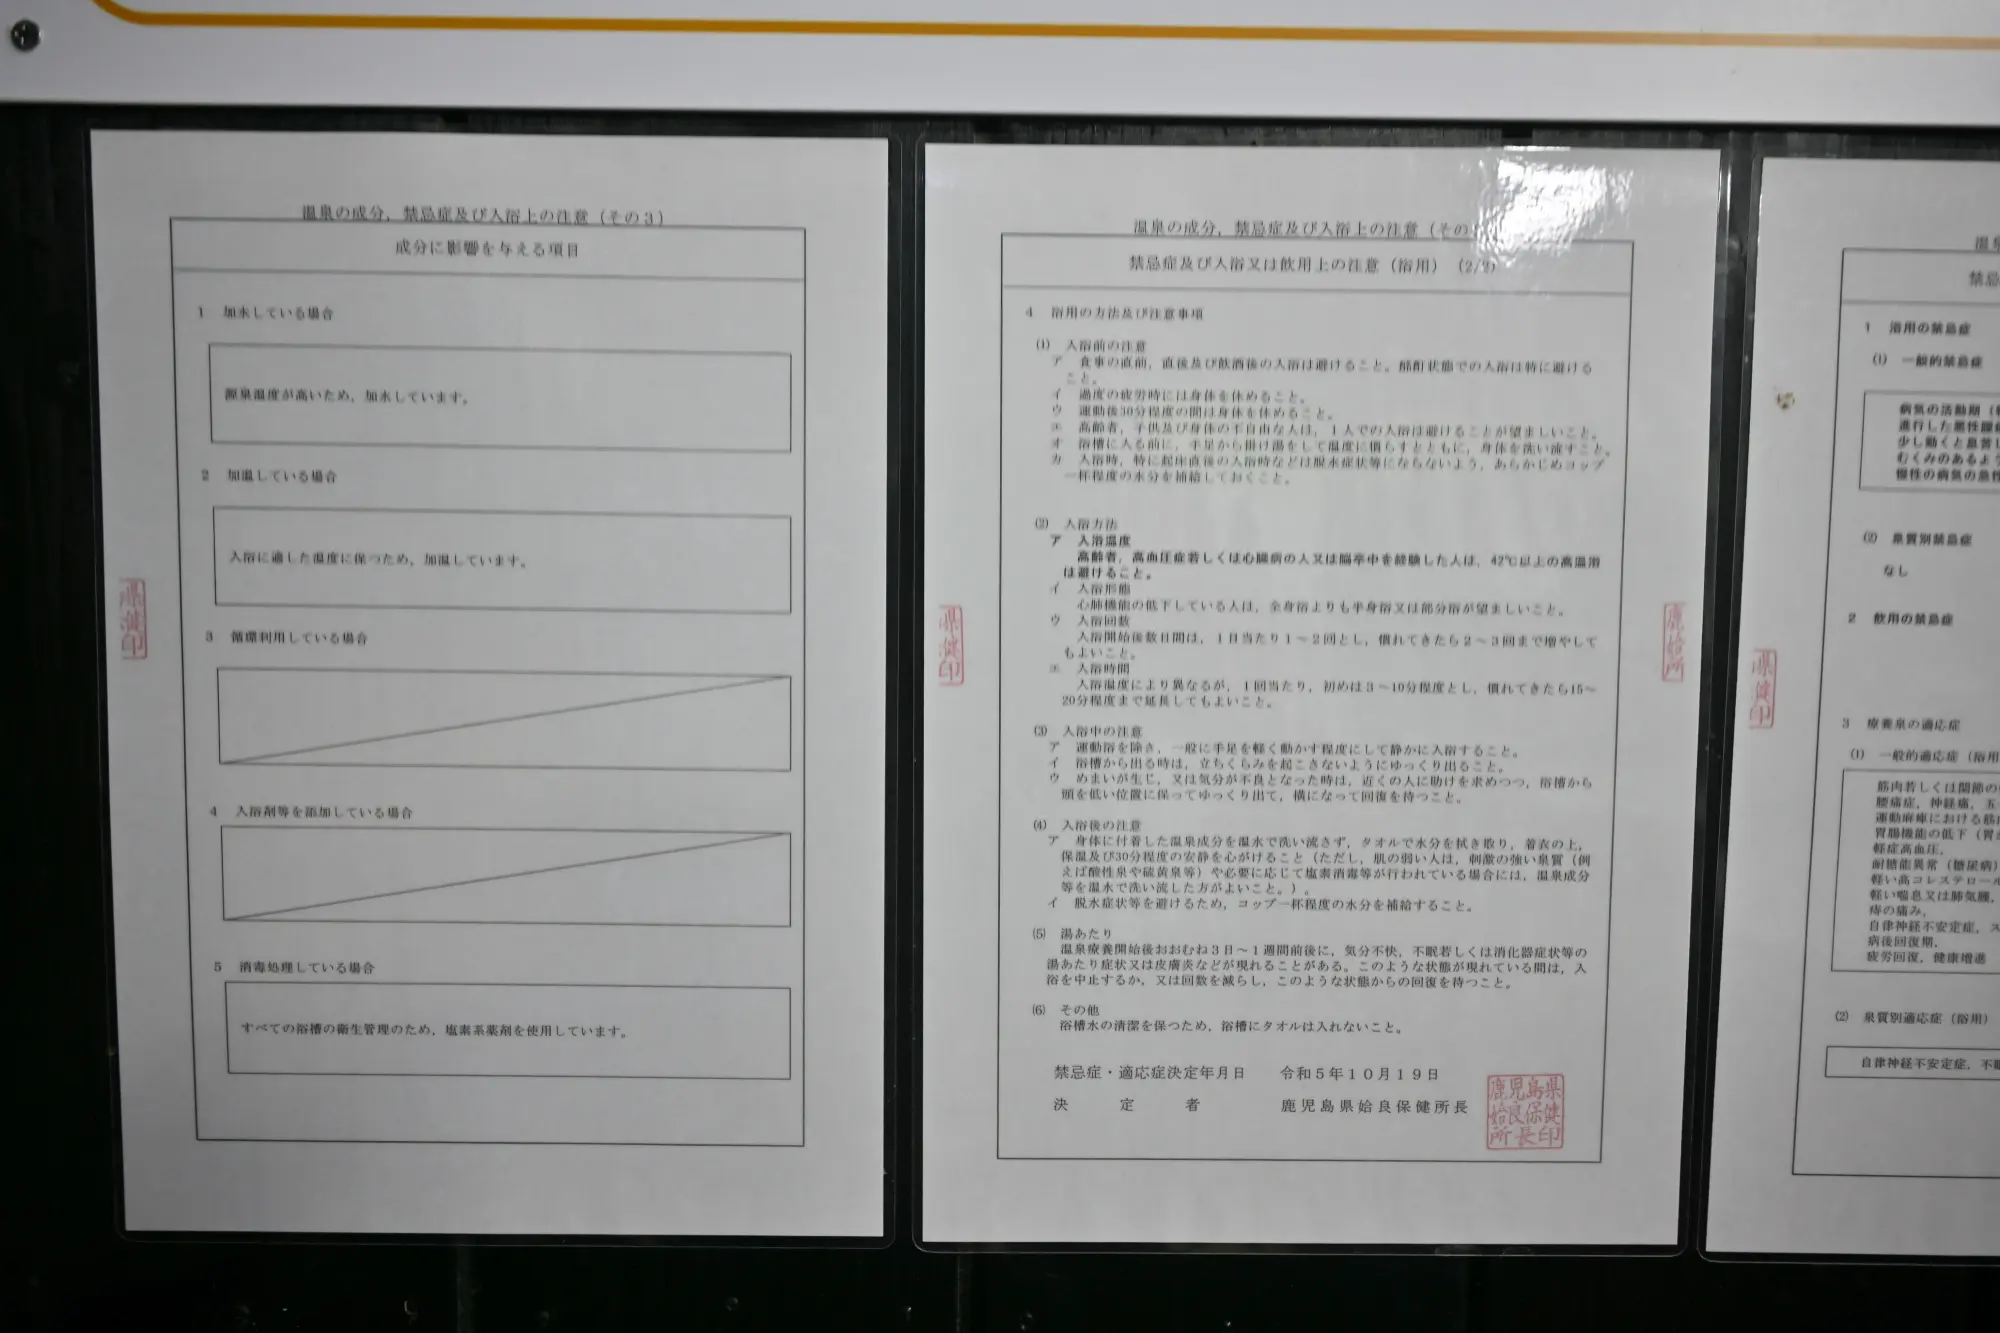 温泉の成分，禁忌症及び入浴上の注意（その３）
成分に影響を与える項目
1 加水している場合
源泉温度が高いため，加水しています。
2 加温している場合
入浴に適した温度に保つため，加温しています。
3 循環利用している場合
4 入浴剤等を添加している場合
5 消毒処理している場合
すべての浴槽の衛生管理のため，塩素系薬剤を使用しています。
県
健
印
温泉の成分，禁忌症及び入浴上の注意（その
禁忌症及び入浴又は飲用上の注意（浴用）（2/2）
4 浴用の方法及び注意事項
(1) 入浴前の注意
ア 食事の直前，直後及び飲酒後の入浴は避けること。酩酊状態での入浴は特に避ける
こと。
イ 過度の疲労時には身体を休めること。
ウ 運動後30分程度の間は身体を休めること。
エ 高齢者，子供及び身体の不自由な人は，１人での入浴は避けることが望ましいこと。
オ 浴槽に入る前に，手足から掛け湯をして温度に慣らすとともに，身体を洗い流すこと。
カ 入浴時，特に起床直後の入浴時などは脱水症状等にならないよう，あらかじめコップ
一杯程度の水分を補給しておくこと。
(2) 入浴方法
ア 入浴温度
高齢者，高血圧症若しくは心臓病の人又は脳卒中を経験した人は，42℃以上の高温浴
は避けること。
イ 入浴形態
心肺機能の低下している人は，全身浴よりも半身浴又は部分浴が望ましいこと。
ウ 入浴回数
入浴開始後数日間は，１日当たり１～２回とし，慣れてきたら２～３回まで増やして
もよいこと。
エ 入浴時間
入浴温度により異なるが，１回当たり，初めは３～10分程度とし，慣れてきたら15～
20分程度まで延長してもよいこと。
(3) 入浴中の注意
ア 運動浴を除き，一般に手足を軽く動かす程度にして静かに入浴すること。
イ 浴槽から出る時は，立ちくらみを起こさないようにゆっくり出ること。
ウ めまいが生じ，又は気分が不良となった時は，近くの人に助けを求めつつ，浴槽から
頭を低い位置に保ってゆっくり出て，横になって回復を待つこと。
(4) 入浴後の注意
ア 身体に付着した温泉成分を温水で洗い流さず，タオルで水分を拭き取り，着衣の上，
保温及び30分程度の安静を心がけること（ただし，肌の弱い人は，刺激の強い泉質（例
えば酸性泉や硫黄泉等）や必要に応じて塩素消毒等が行われている場合には，温泉成分
等を温水で洗い流した方がよいこと。）。
イ 脱水症状等を避けるため，コップ一杯程度の水分を補給すること。
(5) 湯あたり
温泉療養開始後おおむね３日～１週間前後に，気分不快，不眠若しくは消化器症状等の
湯あたり症状又は皮膚炎などが現れることがある。このような状態が現れている間は，入
浴を中止するか，又は回数を減らし，このような状態からの回復を待つこと。
(6) その他
浴槽水の清潔を保つため，浴槽にタオルは入れないこと。
禁忌症・適応症決定年月日 令和５年１０月１９日
決定者 鹿児島県姶良保健所長
鹿児島県
姶良保健
所長印
県
健
印
鹿
姶
所
温泉
禁忌
1 浴用の禁忌症
(1) 一般的禁忌症
病気の活動期（
進行した悪性腫
少し動くと息苦
むくみのあるよ
慢性の病気の急性
(2) 泉質別禁忌症
なし
2 飲用の禁忌症
3 療養泉の適応症
(1) 一般的適応症（浴用
筋肉若しくは関節の
腰痛症，神経痛，五
運動麻痺における筋
胃腸機能の低下（胃
軽症高血圧，
耐糖能異常（糖尿病）
軽い高コレステロール
軽い喘息又は肺気腫，
痔の痛み，
自律神経不安定症，ス
病後回復期，
疲労回復，健康増進
(2) 泉質別適応症（浴用）
自律神経不安定症，不眠
県
健
印